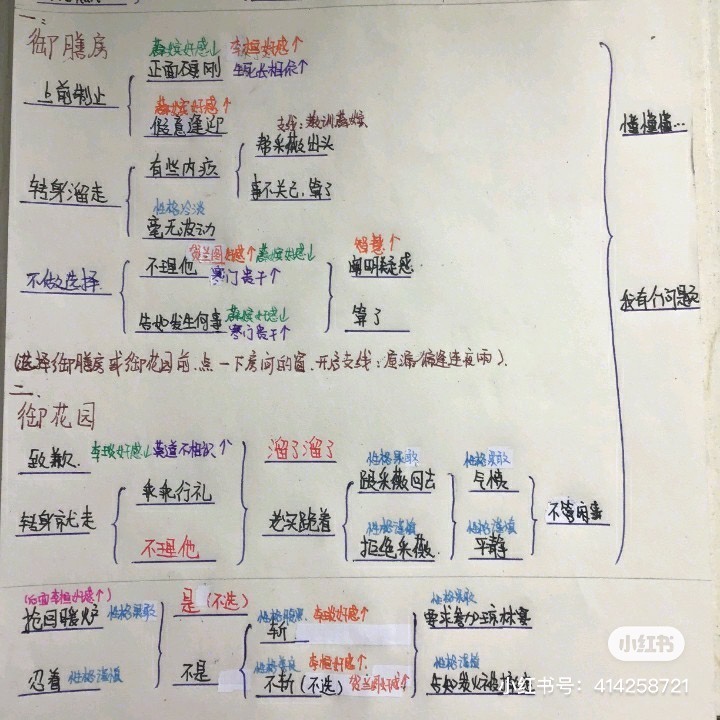 一:
御膳房
蘇嫔好感↓ 李桓好感↑
正面硬刚 生死长相依↑
上前制止
蘇嫔好感↑
假意逢迎
支线:教训蘇嫔
帮采薇出头
有些内疚
转身溜走
事不关己,算了
性格冷淡
毫无波动
贺兰图好感↑ 蘇嫔好感↓
不理他 寒门贵干↑
不做选择
告知发生何事 蘇嫔好感↓
寒门贵干↑
智慧↑
阐明疑惑
算了
懂懂懂...
我有个问题
(选择御膳房或御花园前,点一下房间的窗,开启支线:屋漏偏逢连夜雨).
二.
御花园
致歉. 李琰好感↓莫道不相识↑
溜了溜了
乖乖行礼
转身就走
不理他
老实跪着
性格果敢
跟采薇回去
性格谨慎
拒绝采薇
性格果敢
气愤
性格谨慎
平静
不管闲事
(后面李桓好感↑)
抢回暖炉 性格果敢
忍着 性格谨慎
是(不选)
不是
李琰好感↑
斩
李桓好感↑
不斩(不选) 贺兰图好感↑
性格果敢
要求参加琼林宴
性格谨慎
小红书
小红书号:414258721